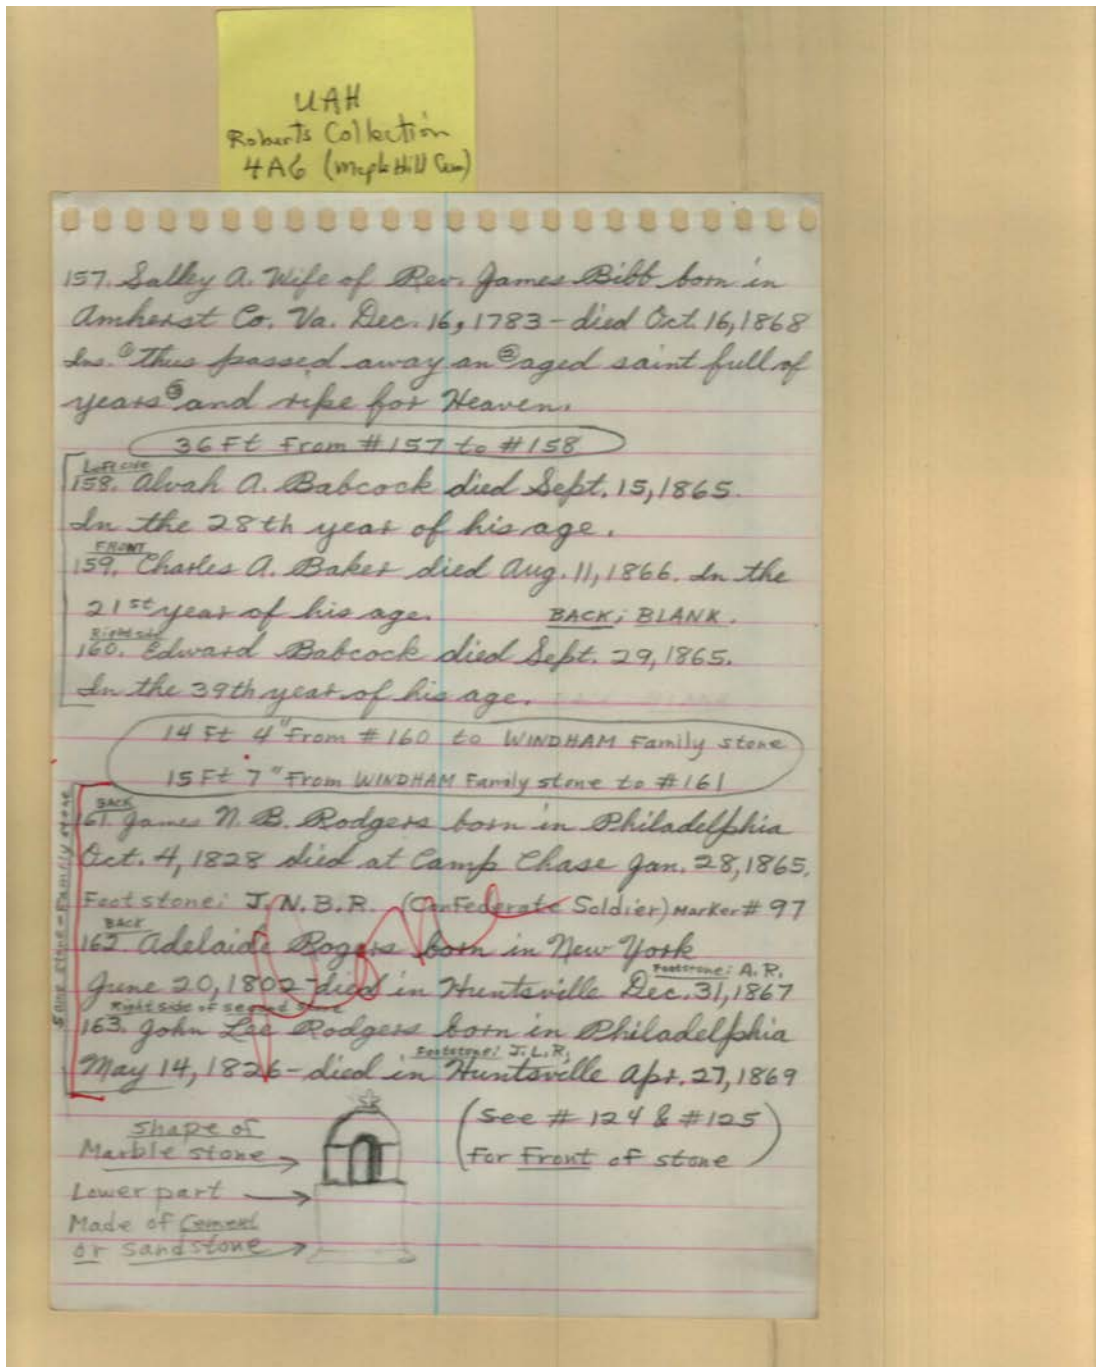 UAH
Roberts Collection
4A6 (Maple Hill Cem)
157. Salley A. Wife of Rev. James Bibb born in
Amherst Co. Va. Dec. 16, 1783 - died Oct. 16, 1868
Ins. ① Thus passed away an ② aged saint full of
years ③ and ripe for Heaven.
36 Ft From #157 to #158
Left side
158. Alvah A. Babcock died Sept. 15, 1865.
In the 28th year of his age.
FRONT
159. Charles A. Baker died Aug. 11, 1866. In the
21st year of his age. BACK; BLANK.
Right side
160. Edward Babcock died Sept. 29, 1865.
In the 39th year of his age.
14 Ft 4" From #160 to WINDHAM Family stone
15 Ft 7" From WINDHAM Family stone to #161
Same stone - Family stone
BACK
161. James N. B. Rodgers born in Philadelphia
Oct. 4, 1828 died at Camp Chase Jan. 28, 1865.
Footstone: J. N. B. R. (Confederate Soldier) Marker # 97
BACK
162. Adelaide Rogers born in New York
Footstone: A. R.
June 20, 1802 - died in Huntsville Dec. 31, 1867
Right side of second stone
163. John Lee Rodgers born in Philadelphia
Footstone: J. L. R.
May 14, 1826 - died in Huntsville Apr. 27, 1869
(See # 124 & #125
For Front of stone)
Shape of
Marble stone
Lower part
Made of Cement
or sandstone